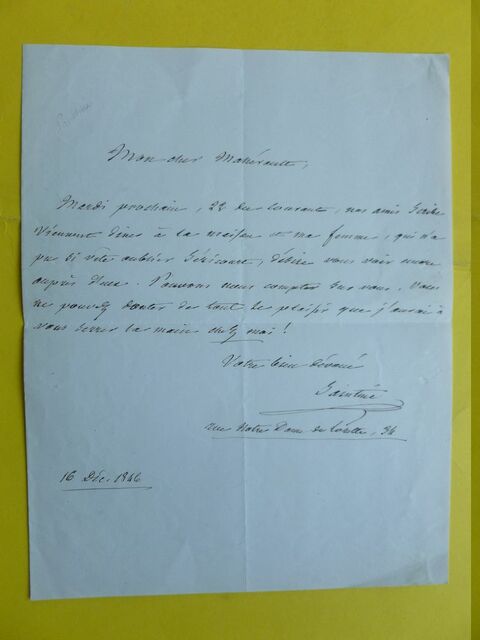 Mon cher Mahérault,
Mardi prochain, 22 du courant, nos amis Scribe
viennent dîner à la maison et ma femme, qui n'a
pu si vite oublier Séricourt, désire vous voir encore
auprès d'eux. Pouvons nous compter sur vous. Vous
ne pouvez douter de tout le plaisir que j'aurai à
vous serrer la main chez moi !
Votre bien dévoué
Saintine
rue Notre Dame de Lorette, 34
16 Déc. 1846